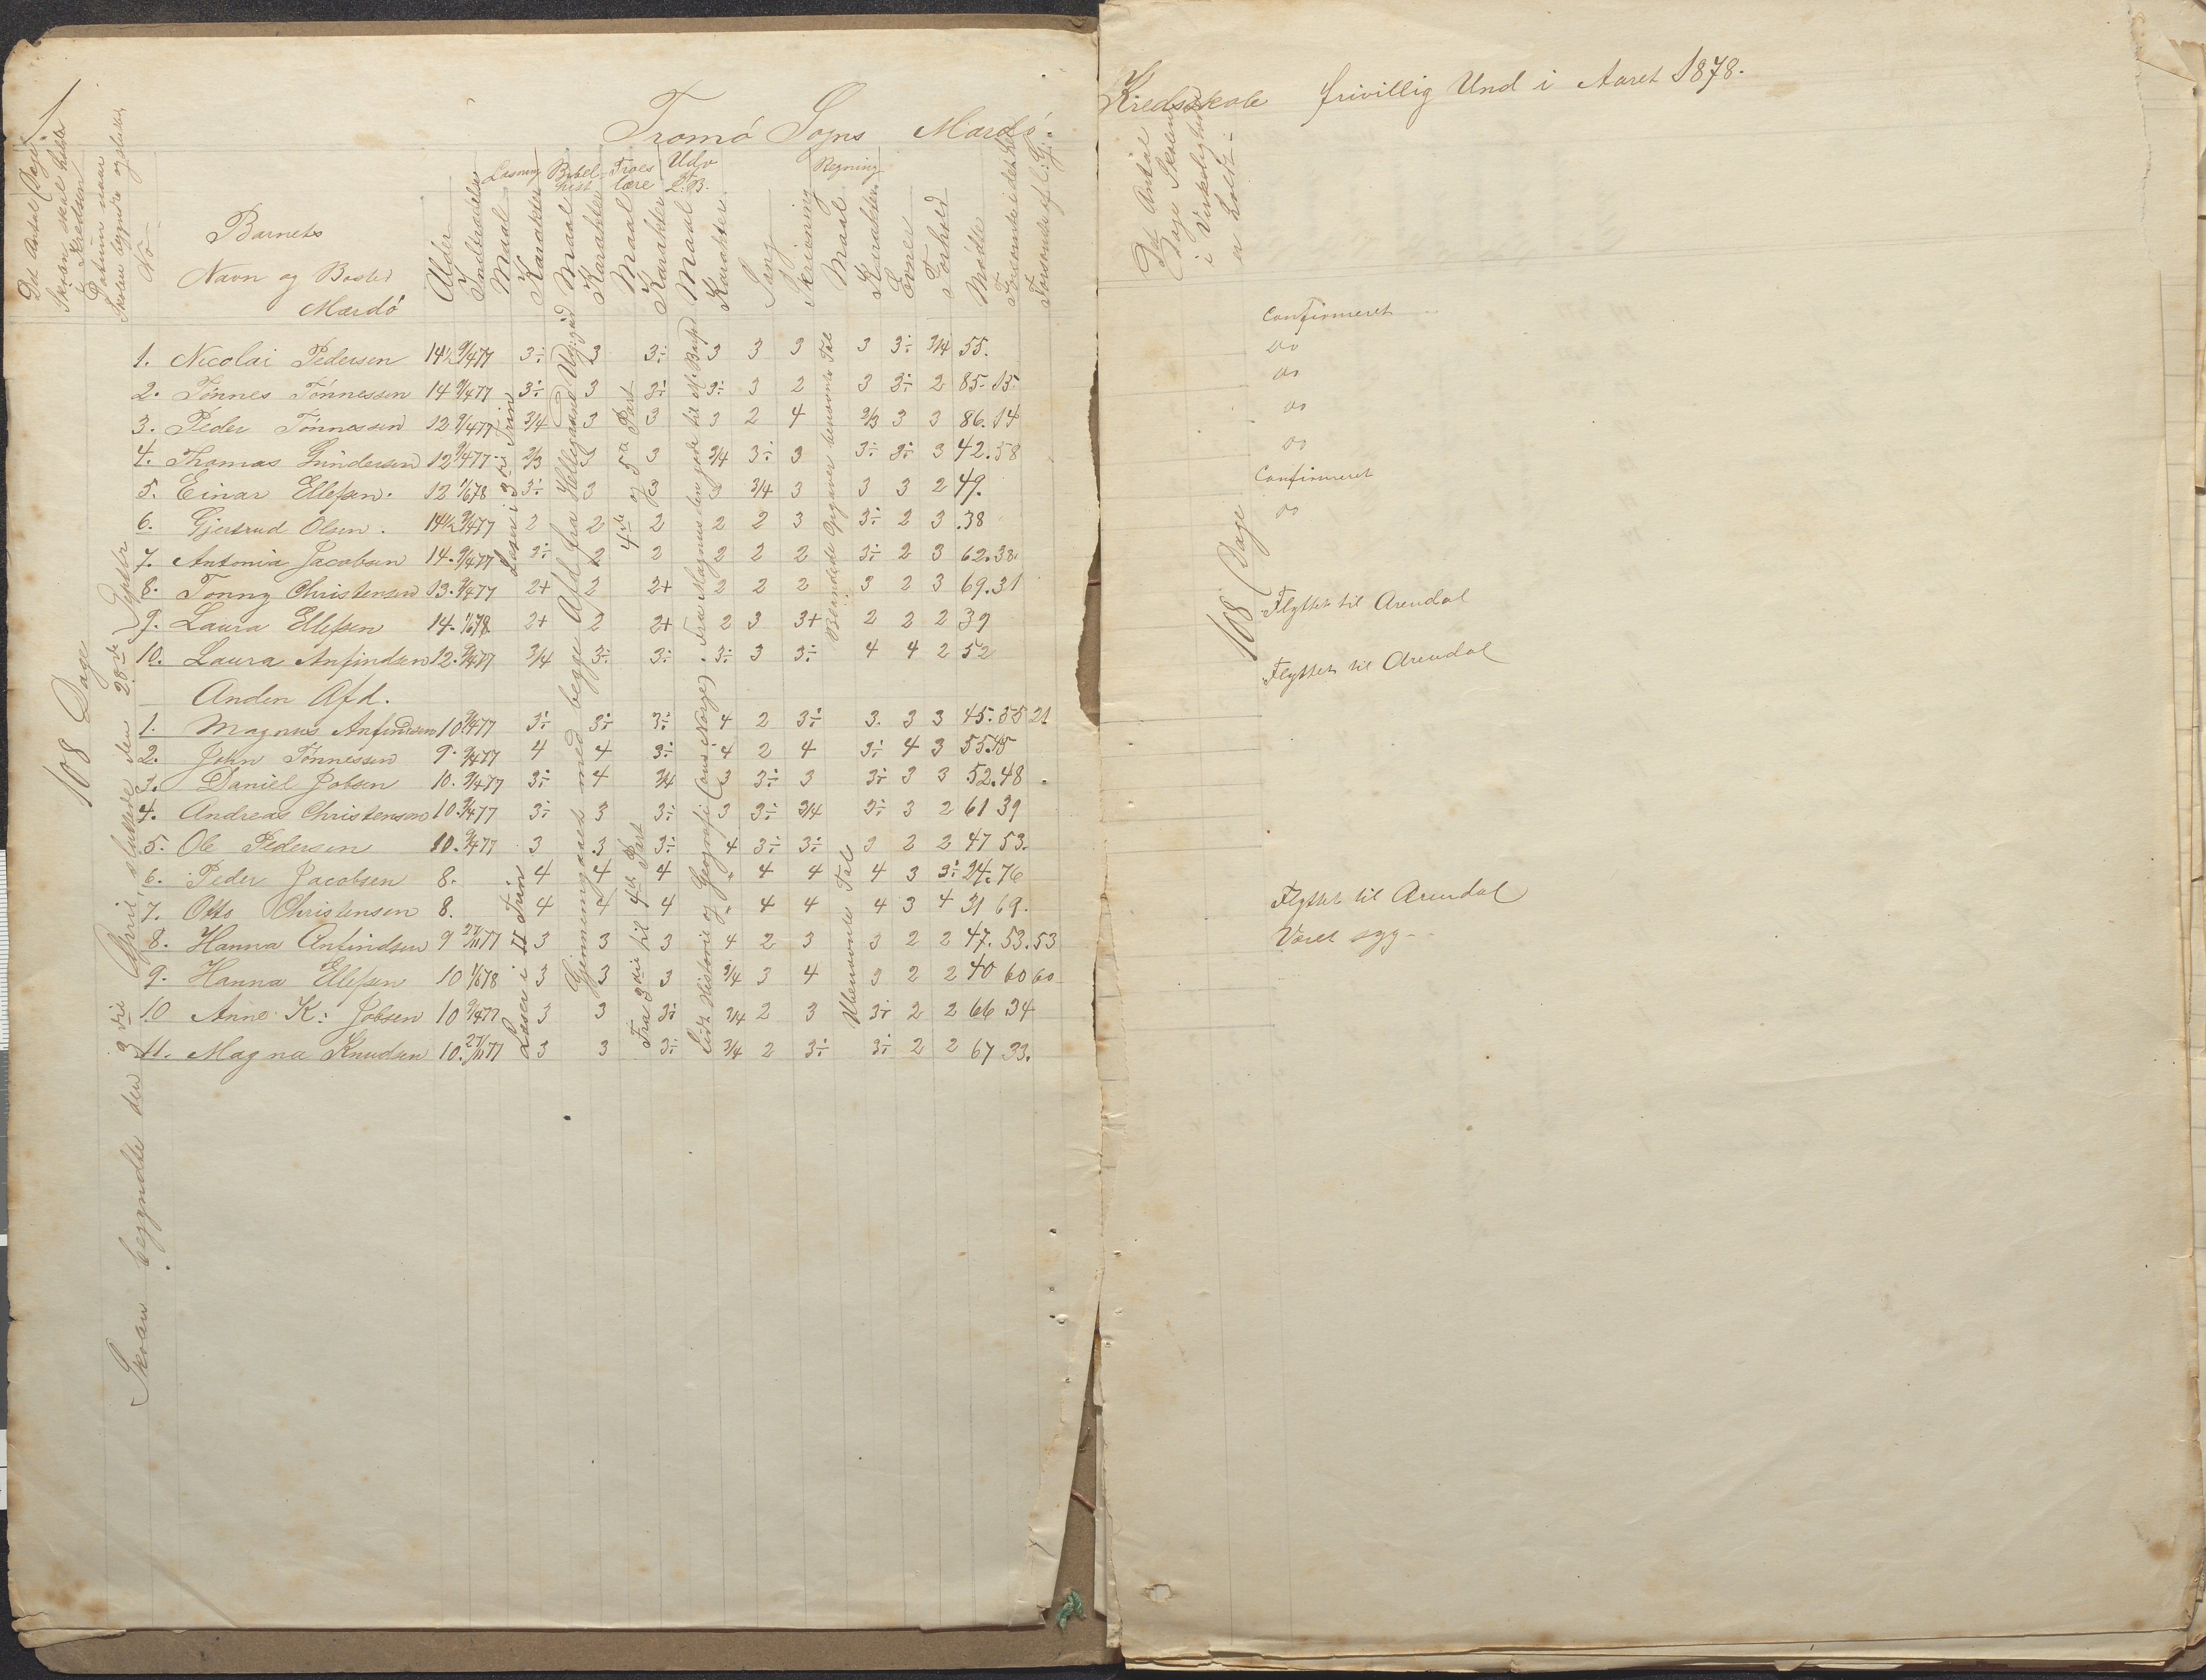 1.
Tromö Sogns Mardö.
Kredsskole frivillig Und i Aaret 1878.
Det Antal Dage Skolen skal holdes i Kredsen
Datum naar Skolen begyndte og sluttes
No
Barnets
Navn og Bosted
Mardö
Alder
Indtrædelse
Læsning
Maal
Karakter
Bibelhist
Maal
Karakter
Troeslære
Maal
Karakter
Udv af L. B.
Maal
Karakter
Sang
Skrivning
Regning
Maal
Karakter
Evner
Forhold
Mødte
Forsømte i det Hele
Forsømte af l: G:
Det Antal Dage Skolen i Virkeligheden er holdt
108 Dage
Skolen begyndte den 3die April, sluttede den 28de
1. Nicolai Pedersen 14½ 9/4 77 3÷ 3 3÷ 3 3 3 3 3÷ 3/4 55. Confirmeret
2. Tönnes Tönnessen 14 9/4 77 3÷ 3 3÷ 3÷ 3 2 3 3÷ 2 85. 15. do
3. Peder Tönnessen 12 9/4 77 3/4 3 3 3 2 4 2/3 3 3 86. 14 do
4. Thomas Gundersen 12 9/4 77 2/3 3 3 3/4 3÷ 3 3÷ 3÷ 3 42. 58 do
5. Einar Ellefsen. 12 1/6 78 3÷ 3 3 3 3/4 3 3 3 2 49. do
6. Gjertrud Olsen. 14½ 9/4 77 2 2 2 2 2 3 3÷ 2 3 .38 Confirmeret
7. Antonia Jacobsen 14. 9/4 77 3÷ 2 2 2 2 2 3÷ 2 3 62. 38. do
8. Tonny Christensen 13. 9/4 77 2+ 2 2+ 2 2 2 3 2 3 69. 31
9. Laura Ellefsen 14. 1/6 78 2+ 2 2+ 2 3 3+ 2 2 2 39 Flyttet til Arendal
10. Laura Anfindsen 12. 9/4 77 3/4 3÷ 3÷ 3÷ 3 3÷ 4 4 2 52 Flyttet til Arendal
Læser i 3die Trin
Gjennemgaaet med begge Afd fra Helligaand Udgjud
4de og 5te Part
Lidt Historie og Geografi (Cons: Norge) Fra Magnus den gode til
Blandede Opgaver benævnte Tal
108 Dage
Anden Afd.
1. Magnus Anfindsen 10 9/4 77 3÷ 3÷ 3÷ 4 2 3÷ 3. 3 3 45. 55 21
2. John Tönnessen 9. 9/4 77 4 4 3÷ 4 2 4 3÷ 4 3 55 45
3. Daniel Jobsen 10. 9/4 77 3÷ 4 3/4 3 3÷ 3 3÷ 3 3 52. 48
4. Andreas Christensen 10. 9/4 77 3÷ 3 3÷ 3 3÷ 3/4 3÷ 3 2 61 39
5. Ole Pedersen 10. 9/4 77 3 3 3÷ 4 3÷ 3÷ 3 2 2 47 53.
6. Peder Jacobsen 8. 4 4 4 „ 4 4 4 3 3÷ 24. 76
7. Otto Christensen 8. 4 4 4 „ 4 4 4 3 4 31 69. Flyttet til Arendal
8. Hanna Anfindsen 9 27/11 77 3 3 3 4 2 3 3 2 2 47. 53. 53 Været syg
9. Hanna Ellefsen 10 1/6 78 3 3 3 3/4 3 4 3 2 2 40 60 60
10 Anne K: Jobsen 10 9/4 77 3 3 3÷ 3/4 2 3 3÷ 2 2 66 34
11. Magna Knudsen 10. 27/11 77 3 3 3÷ 3/4 2 3÷ 3÷ 2 2 67 33.
Læser i II Trin
Fra 3die til 4de Part
Ubenævnte Tal